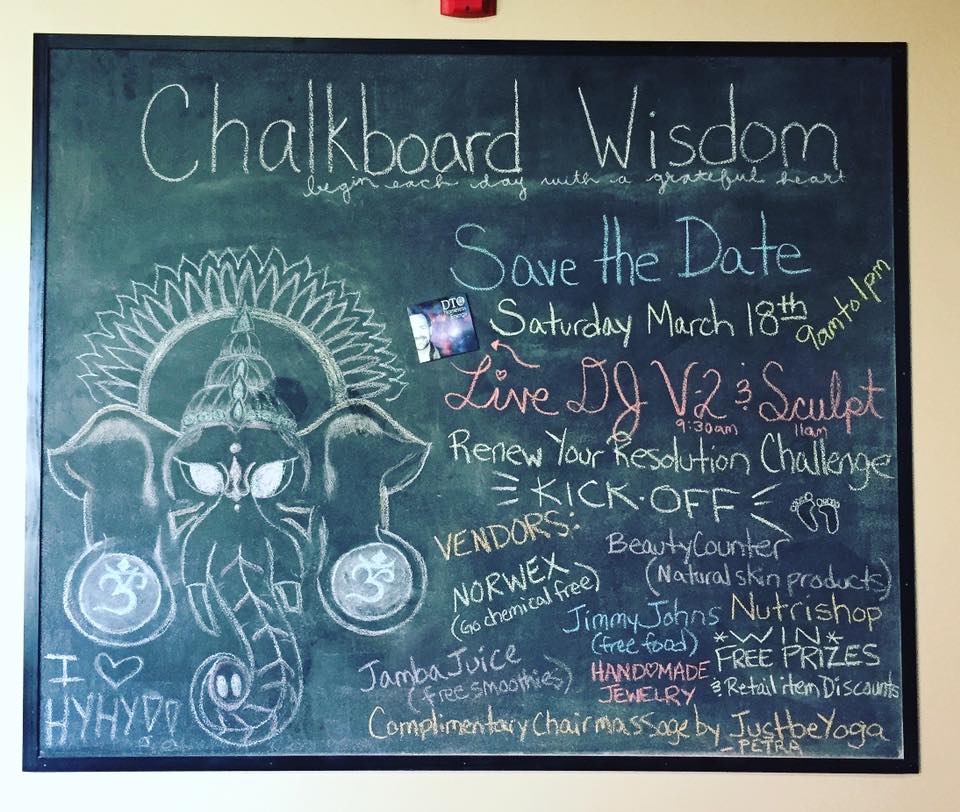 Chalkboard Wisdom
begin each day with a grateful heart
Save the Date
Saturday March 18th 9am to 1pm
Live DJ V2 & Sculpt
9:30am 11am
Renew Your Resolution Challenge
KICK-OFF
VENDORS:
BeautyCounter
(Natural skin products)
NORWEX
(Go chemical free)
Jimmy Johns
(free food)
Nutrishop
*WIN*
FREE PRIZES
& Retail item Discounts
Jamba Juice
(free smoothies)
HANDMADE
JEWELRY
Complimentary Chair massage by JustbeYoga
- PETRA
ॐ ॐ
I ♡
HYHY